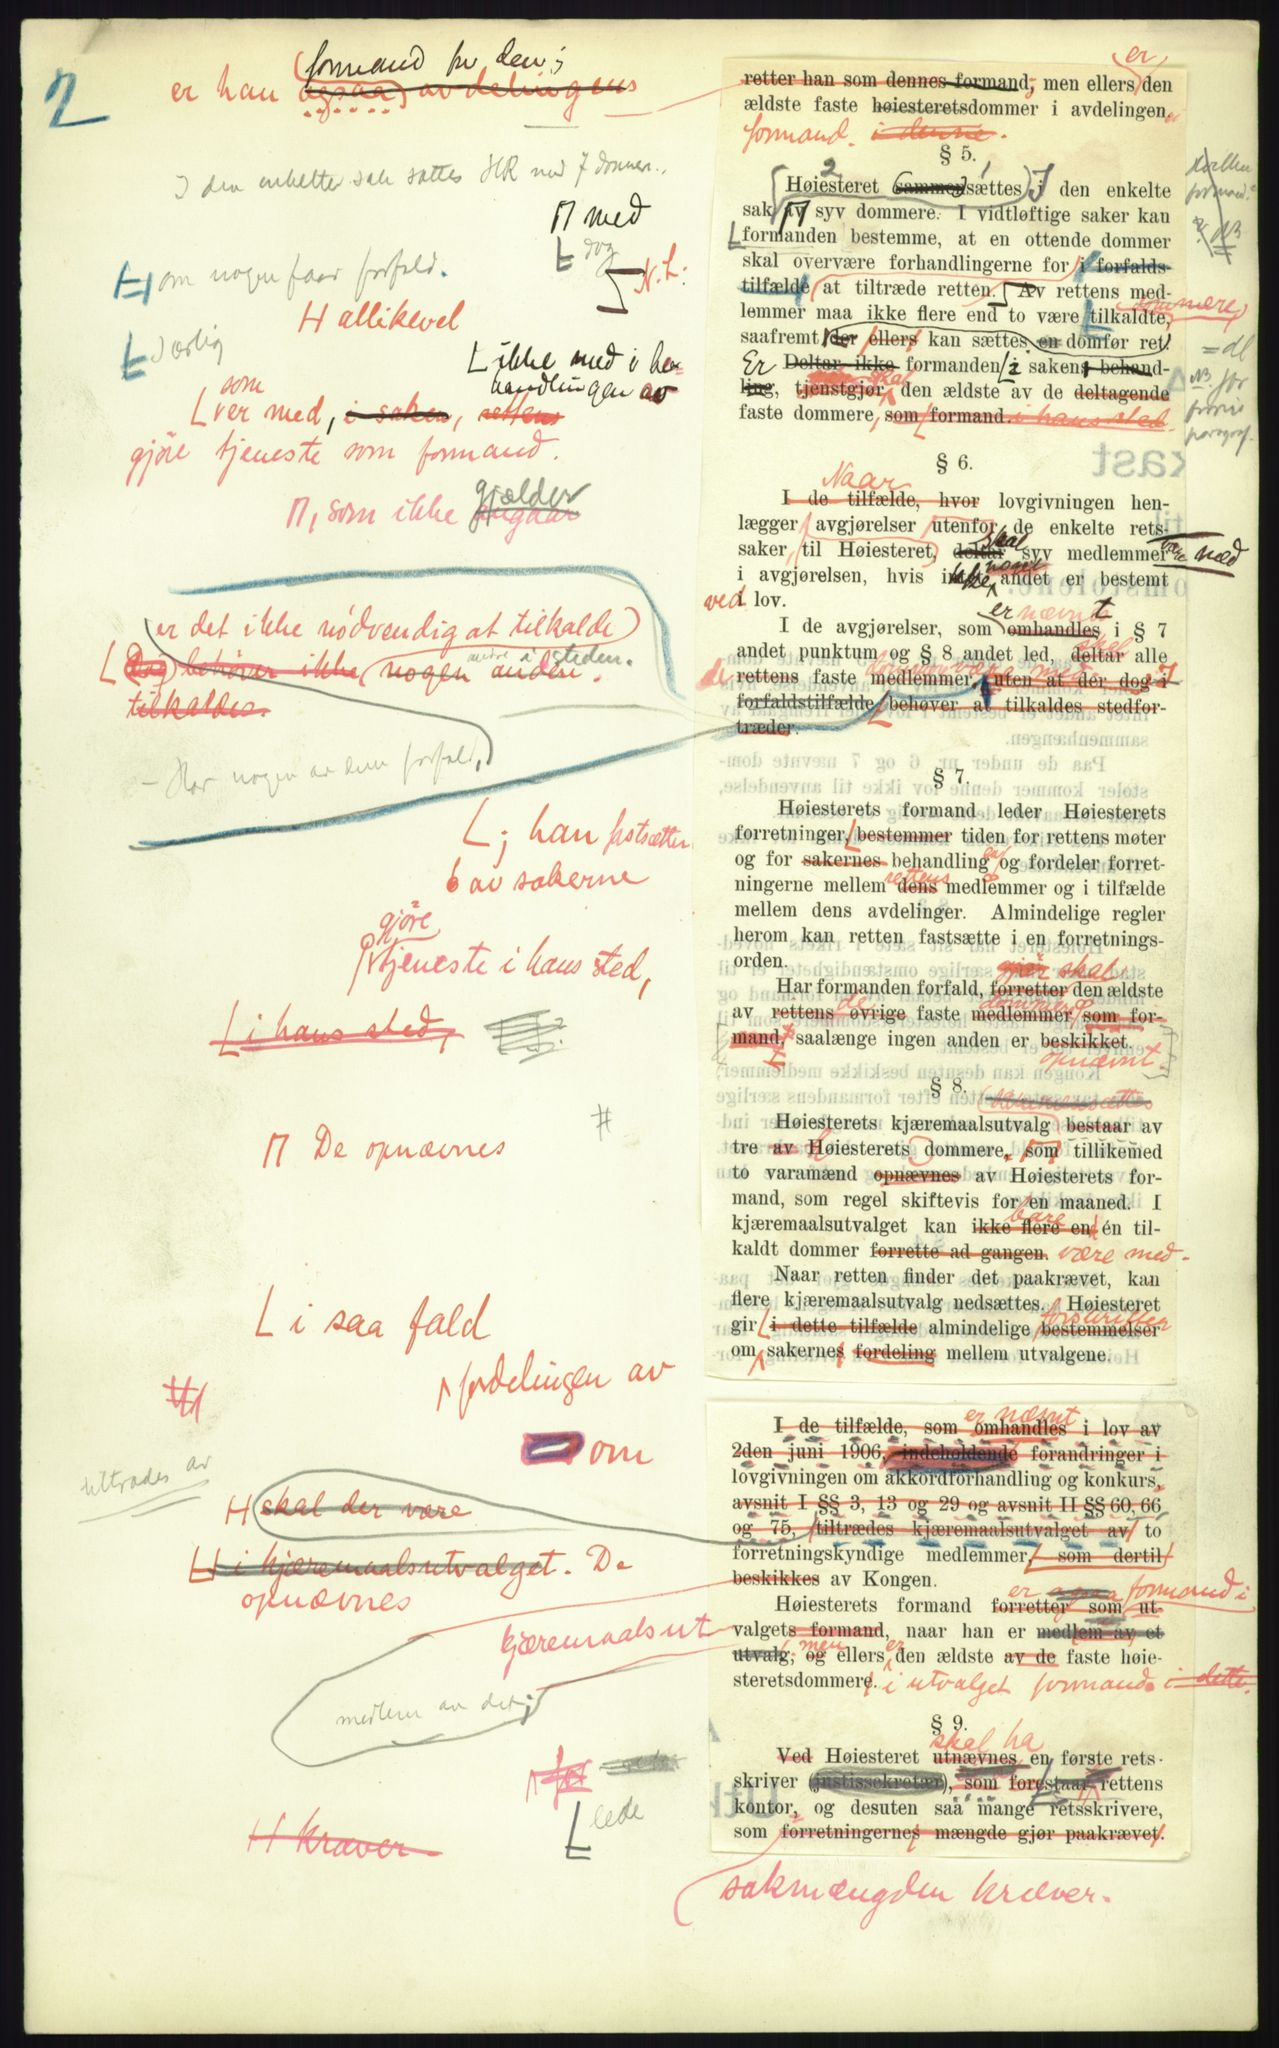 2
formand for den;
er han ogsaa avdelingens
er
retter han som dennes formand, men ellers den
ældste faste høiesteretsdommer i avdelingen
formand. i denne.
§ 5.
I den enkelte sak sættes HR med 7 dommere.
2
Høiesteret (sammensættes) i den enkelte
sak av syv dommere. I vidtløftige saker kan
formanden bestemme, at en ottende dommer
skal overvære forhandlingerne for i forfalds-
tilfælde at tiltræde retten. Av rettens med-
lemmer maa ikke flere end to være tilkaldte,
saafremt der ellers kan sættes en domfør ret.
Er Deltar ikke formanden i sakens behand-
ling, tjenstgjør den ældste av de deltagende
faste dommere, som formand. i hans sted.
skal
dommere
med
dog
N. L.
om nogen faar forfald.
allikevel
særlig
ikke med i be-
handlingen av
som
er med, i saken, rettens
gjöre tjeneste som formand.
NB.
for
§ 6.
Naar
I de tilfælde, hvor lovgivningen hen-
lægger avgjørelser utenfor de enkelte rets-
saker til Høiesteret, deltar syv medlemmer
i avgjørelsen, hvis ikke andet er bestemt
ved i lov.
skal
være med
noget
gjælder
, som ikke angaar
er nævnt
I de avgjørelser, som omhandles i § 7
andet punktum og § 8 andet led, deltar alle
rettens faste medlemmer, uten at der dog i
forfaldstilfælde behøver at tilkaldes stedfor-
træder.
skal
de
være med
er det ikke nödvendig at tilkalde
Dog behöver ikke nogen anden.
andre i steden.
tilkaldes.
- Har nogen av dem forfald,
§ 7.
Høiesterets formand leder Høiesterets
forretninger, bestemmer tiden for rettens møter
og for sakernes behandling og fordeler forret-
ningerne mellem dens medlemmer og i tilfælde
mellem dens avdelinger. Almindelige regler
herom kan retten fastsætte i en forretnings-
orden.
rettens
; han fastsætter
av sakerne
gjöre
tjeneste i hans sted,
i hans sted,
gjør skal
Har formanden forfald, forretter den ældste
av rettens øvrige faste medlemmer som for-
mand, saalænge ingen anden er beskikket.
de
dommere
opnævnt.
§ 8.
sammensættes
Høiesterets kjæremaalsutvalg bestaar av
tre av Høiesterets dommere, som tillikemed
to varamænd opnævnes av Høiesterets for-
mand, som regel skiftevis for en maaned. I
kjæremaalsutvalget kan ikke flere end én til-
kaldt dommer forrette ad gangen. være med.
bare
#
De opnævnes
Naar retten finder det paakrævet, kan
flere kjæremaalsutvalg nedsættes. Høiesteret
gir i dette tilfælde almindelige bestemmelser
om sakernes fordeling mellem utvalgene.
forskrifter
i saa fald
fordelingen av
er nævnt
I de tilfælde, som omhandles i lov av
2den juni 1906, indeholdende forandringer i
lovgivningen om akkordforhandling og konkurs,
avsnit I §§ 3, 13 og 29 og avsnit II §§ 60, 66
og 75, tiltrædes kjæremaalsutvalget av to
forretningskyndige medlemmer, som dertil
beskikkes av Kongen.
om
tiltrædes av
skal der være
i kjæremaalsutvalget. De
opnævnes
er ogsaa formand i
Høiesterets formand forretter som ut-
valgets formand, naar han er medlem av et
utvalg, og ellers den ældste av de faste høie-
steretsdommere. i utvalget formand. i dette.
men er
kjæremaalsut
medlem av det;
§ 9.
skal ha
Ved Høiesteret utnævnes en første rets-
skriver (justissekretær), som forestaar rettens
kontor, og desuten saa mange retsskrivere,
som forretningernes mængde gjør paakrævet.
for
lede
kræver
sakmængden kræver.